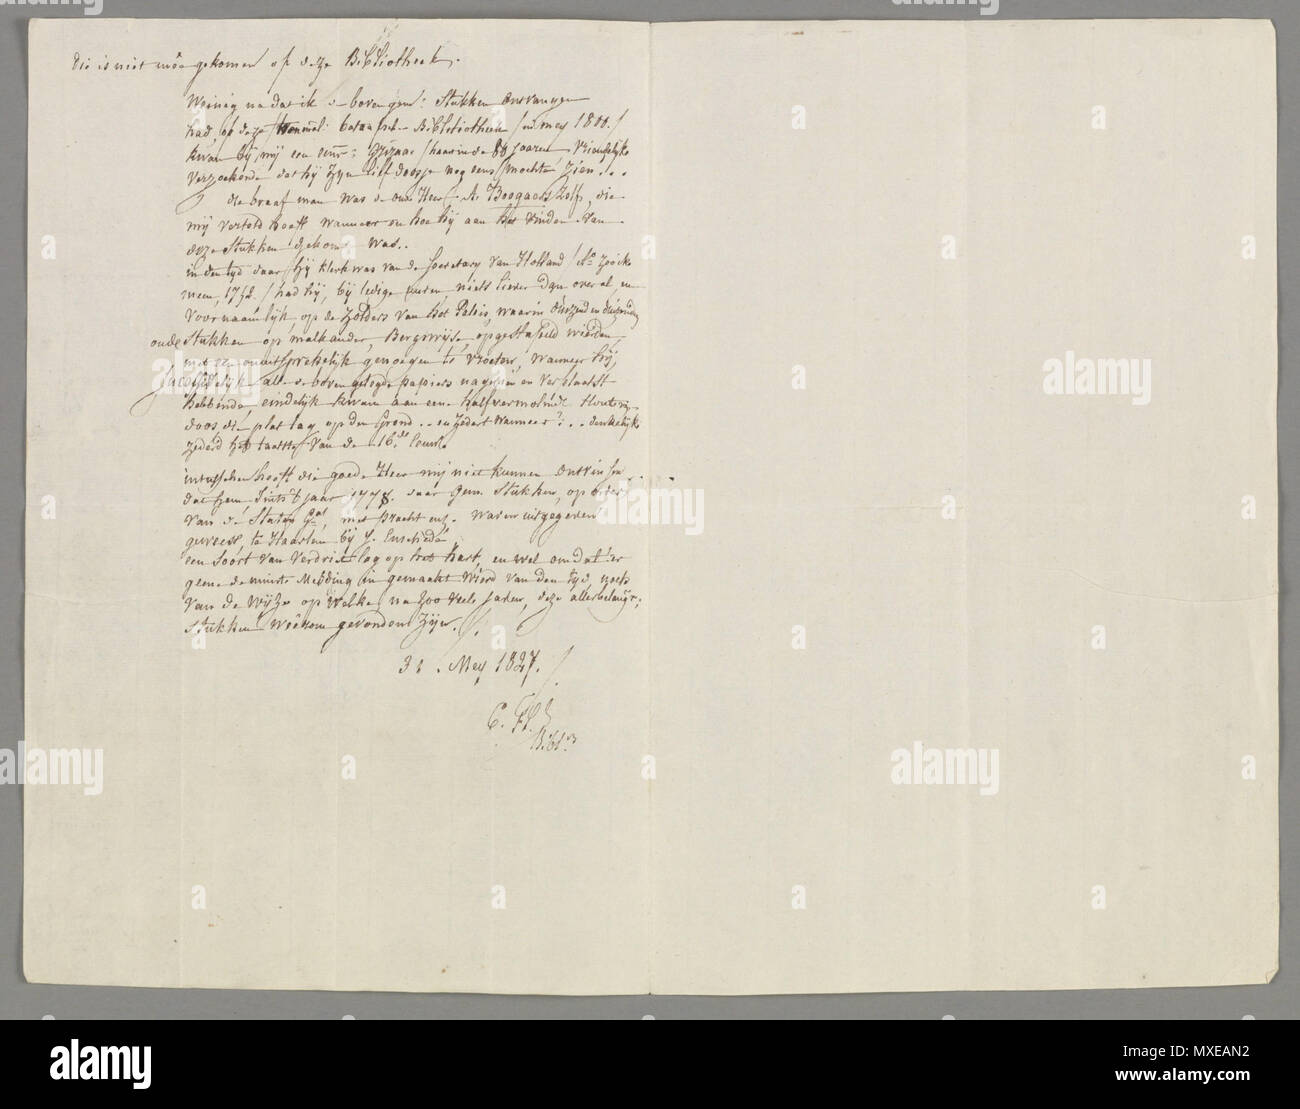 die is niet meê gekomen op deze Bibliotheek.
Weinig na dat ik de boven gem: Stukken Ontvangen
had, op deze Bibliotheek in mey 1800./
kwam bij mij een Grijzaar / haast in de 80 jaaren Vriendelijk
Verzoekende dat hij Zijn lief doosje nog eens mochte Zien...
die braaf man was de oude Heer A. Boogaers Zelf, die
mij verteld heeft wanneer en hoe hij aan het Vinden van
deze Stukken gekom: was..
in den tyd daar hij Klerk was van de Secretary van Holland /
meen, 1752. / had hij, bij ledige uuren niets liever dan over al, en
Voornaamlijk, op de Zolders van het Paleis, waarin duizend en duizend
oude Stukken op malkander, Bergswijse opgestapeld wierden,
met een onuitsprekelijk genoegen te Vroeten, wanneer hij,
alle de boven gelegde papiers nagezien en verplaatst
hebbende, eindelijk kwam aan een half vermolmde Houten
doos die plat lag op den Grond .. en Zedert wanneer?: .. denkelijk
Zederd het laatste van de 16de Eeuw.
intusschen heeft die goede Heer mij niet kunnen Ontveinsen
dat hem Sints 't jaar 1778. daar gem. Stukken, op order
van de Staten Gnl, met pracht enz. waren uitgegeven
geweest, te Haarlem bij J. Enschedé
een Soort van Verdriet lag op het hart, en wel om dat 'er
geene de minste Melding in gemaakt wierd van den tyd, noch
van de wijze op welke, na zoo veele jaren, deze allerbelangr:
Stukken weêrom gevonden Zijn. /.
31. Mey 1827. /
C. Fl.
Bibl.
alamy
a
Image ID: MXEAN2
www.alamy.com